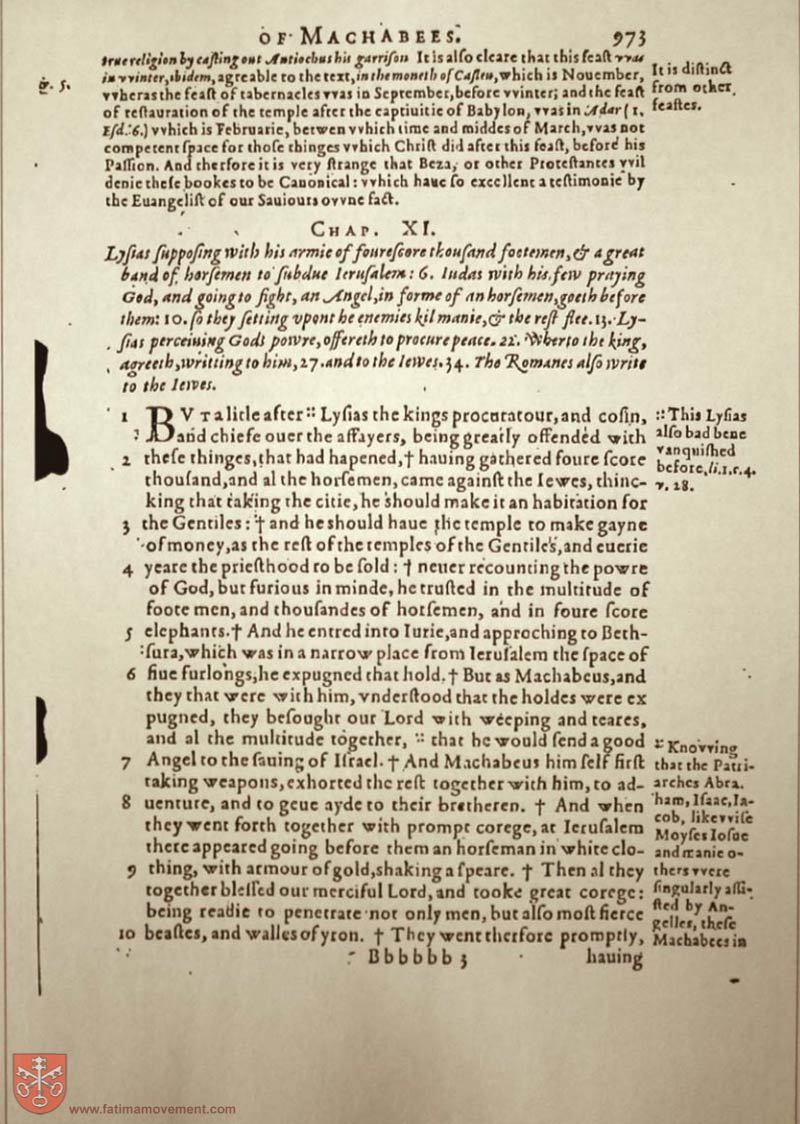 OF MACHABEES. 973
true religion by caſting out Antiochus his garriſon It is alſo cleare that this feaſt vvas
in vvinter, ibidem, agreable to the text, in the moneth of Caſleu, which is Nouember,
vvheras the feaſt of tabernacles vvas in September, before vvinter; and the feaſt
of reſtauration of the temple after the captiuitie of Babylon, vvas in Adar (1.
Eſd. 6.) vvhich is Februarie, betwen vvhich time and middes of March, vvas not
competent ſpace for thoſe thinges vvhich Chriſt did after this feaſt, before his
Paſſion. And therfore it is very ſtrange that Beza, or other Proteſtantes vvil
denie theſe bookes to be Canonical: vvhich haue ſo excellent a teſtimonie by
the Euangeliſt of our Sauiours ovvne fact.
v. 5.
It is diſtinct
from other
feaſtes.
CHAP. XI.
Lyſias ſuppoſing with his armie of foureſcore thouſand footemen, & a great
band of horſemen to ſubdue Ieruſalem: 6. Iudas with his few praying
God, and going to fight, an Angel, in forme of an horſemen, goeth before
them: 10. ſo they ſetting vpont he enemies kil manie, & the reſt flee. 13. Ly-
ſias perceiuing Gods powre, offereth to procure peace. 22. Wherto the king,
agreeth, writting to him, 27. and to the Iewes. 34. The Romanes alſo write
to the Iewes.
1 BVT a litle after :: Lyſias the kings procuratour, and coſin,
and chiefe ouer the affayers, being greatly offended with
2 theſe thinges, that had hapened, † hauing gathered foure ſcore
thouſand, and al the horſemen, came againſt the Iewes, thinc-
king that taking the citie, he ſhould make it an habitation for
3 the Gentiles: † and he ſhould haue the temple to make gayne
of money, as the reſt of the temples of the Gentiles, and euerie
4 yeare the prieſthood to be ſold: † neuer recounting the powre
of God, but furious in minde, he truſted in the multitude of
foote men, and thouſandes of horſemen, and in foure ſcore
5 elephants. † And he entred into Iurie, and approching to Beth-
ſura, which was in a narrow place from Ieruſalem the ſpace of
6 fiue furlongs, he expugned that hold. † But as Machabeus, and
they that were with him, vnderſtood that the holdes were ex
pugned, they beſought our Lord with weeping and teares,
and al the multitude together, :: that he would ſend a good
7 Angel to the ſauing of Iſrael. † And Machabeus him ſelf firſt
taking weapons, exhorted the reſt together with him, to ad-
8 uenture, and to geue ayde to their bretheren. † And when
they went forth together with prompt corege, at Ieruſalem
there appeared going before them an horſeman in white clo-
9 thing, with armour of gold, ſhaking a ſpeare. † Then al they
together bleſſed our merciful Lord, and tooke great corege:
being readie to penetrate not only men, but alſo moſt fierce
10 beaſtes, and walles of yron. † They went therfore promptly,
:: This Lyſias
alſo had bene
vanquiſhed
before, li. 1. c. 4.
v. 28.
:: Knovving
that the Patri-
arches Abra.
ham, Iſaac, Ia-
cob, likevviſe
Moyſes Ioſue
and manie o-
thers vvere
ſingularly aſſi-
ſted by An-
gelles, theſe
Machabees in
Bbbbbb 3 hauing
www.fatimamovement.com